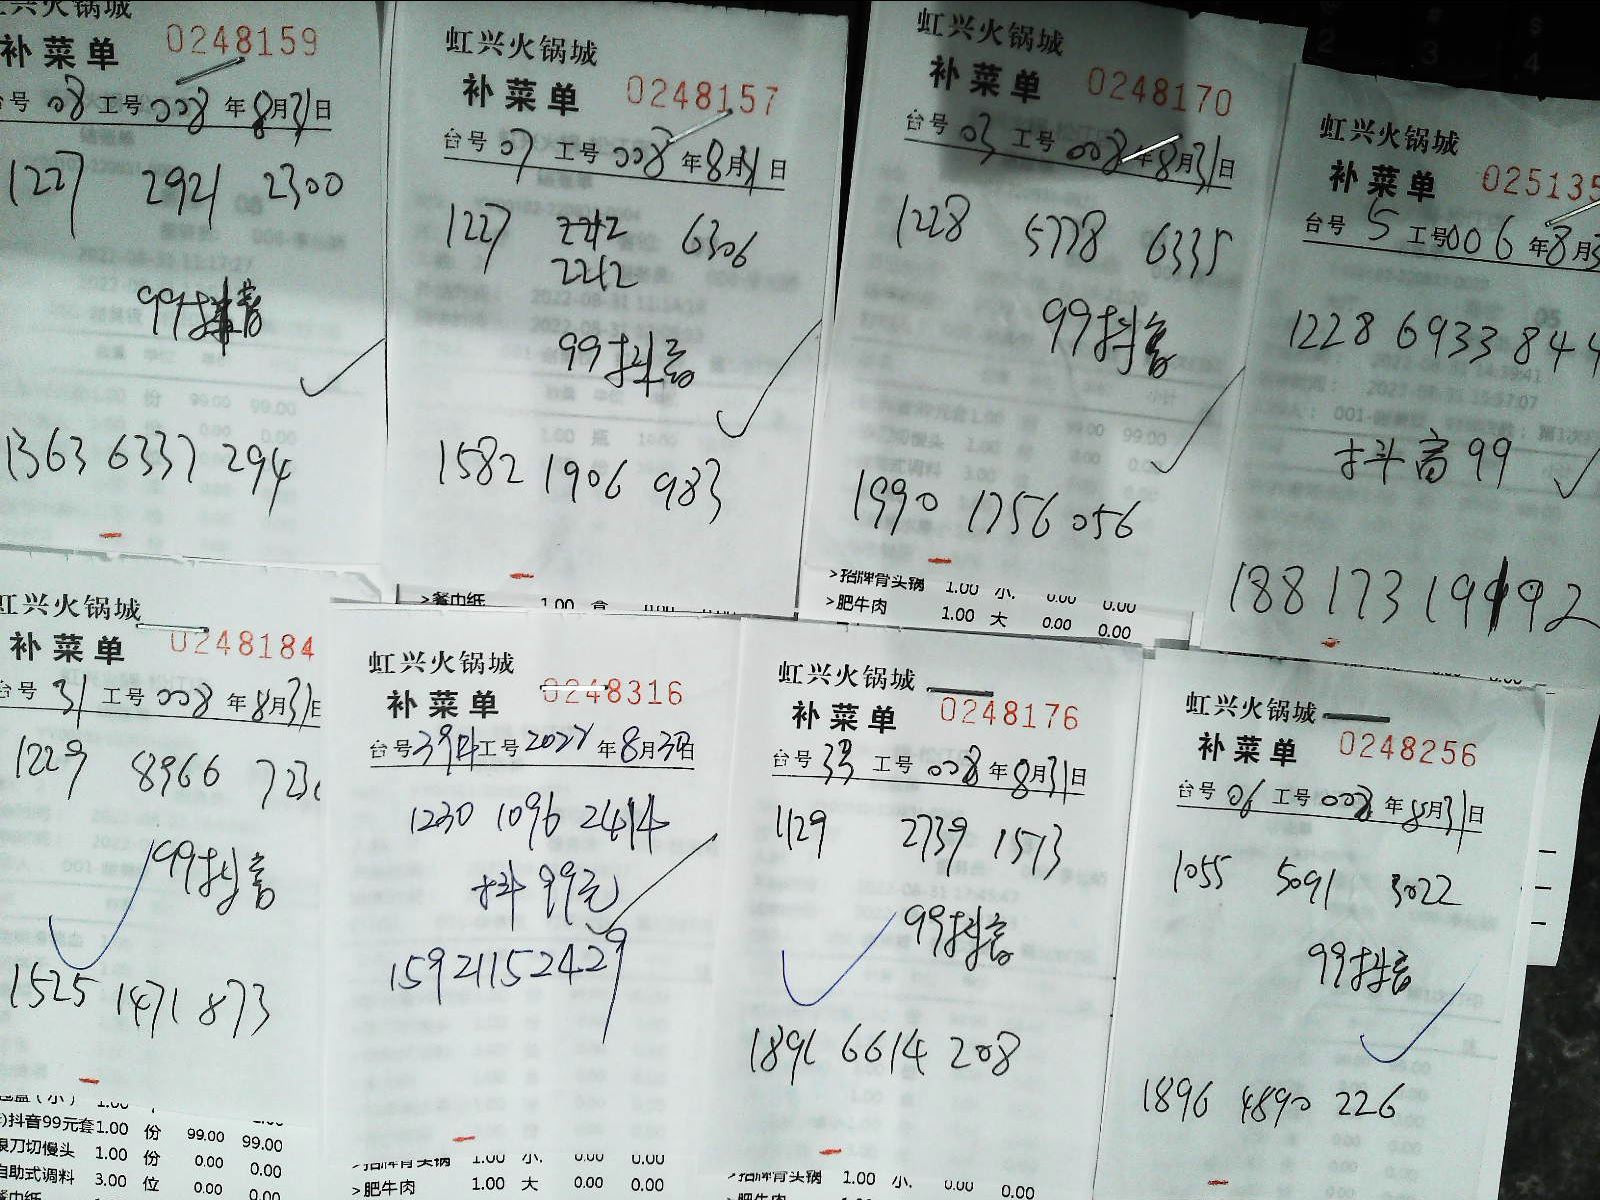 虹兴火锅城
补菜单 0248159
台号 08 工号 008 年 8月31日
1227 2921 2300
99抖音
1363 6337 294
虹兴火锅城
补菜单 0248157
台号 07 工号 008 年 8月31日
1227 2212 6306
2212
99抖音
1582 1906 983
>餐巾纸 1.00 盒 0.00 0.00
虹兴火锅城
补菜单 0248170
台号 03 工号 008 年 8月31日
1228 5778 6335
99抖音
1990 1756 056
>招牌骨头锅 1.00 小. 0.00 0.00
>肥牛肉 1.00 大 0.00 0.00
虹兴火锅城
补菜单 025135
台号 5 工号 006 年 8月3
1228 6933 844
抖音99
188 173 19992
虹兴火锅城
补菜单 0248184
台号 31 工号 008 年 8月31日
1229 8966 723
99抖音
1525 1471 873
盒（小） 1.00
)抖音99元套 1.00 份 99.00 99.00
银刀切慢头 1.00 份 0.00 0.00
自助式调料 3.00 位 0.00 0.00
餐巾纸
虹兴火锅城
补菜单 0248316
台号 39 工号 2022 年 8月30日
1230 1096 2414
抖99元
15921152429
>招牌骨头锅 1.00 小. 0.00 0.00
>肥牛肉 1.00 大 0.00 0.00
虹兴火锅城
补菜单 0248176
台号 33 工号 008 年 8月31日
1129 2739 1513
99抖音
1891 6614 208
>招牌骨头锅 1.00 小. 0.00 0.00
>肥牛肉
虹兴火锅城
补菜单 0248256
台号 06 工号 008 年 8月31日
1055 5091 3022
99抖音
1896 4890 226